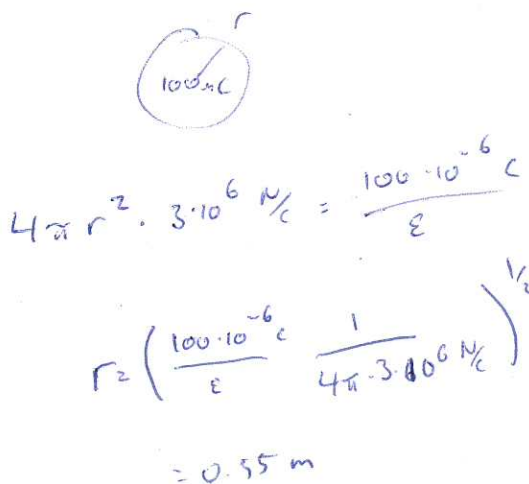 r
100μC
4π r² · 3·10⁶ N/C = 100·10⁻⁶ C / ε
r = ( 100·10⁻⁶ C / ε 1 / 4π·3·10⁶ N/C )^1/2
= 0.55 m